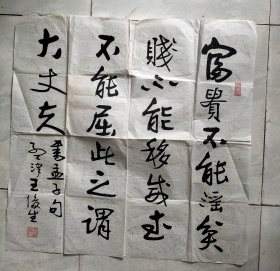 富貴不能淫貧
賤不能移威武
不能屈此之謂
大丈夫
書孟子句
孟津王俊生